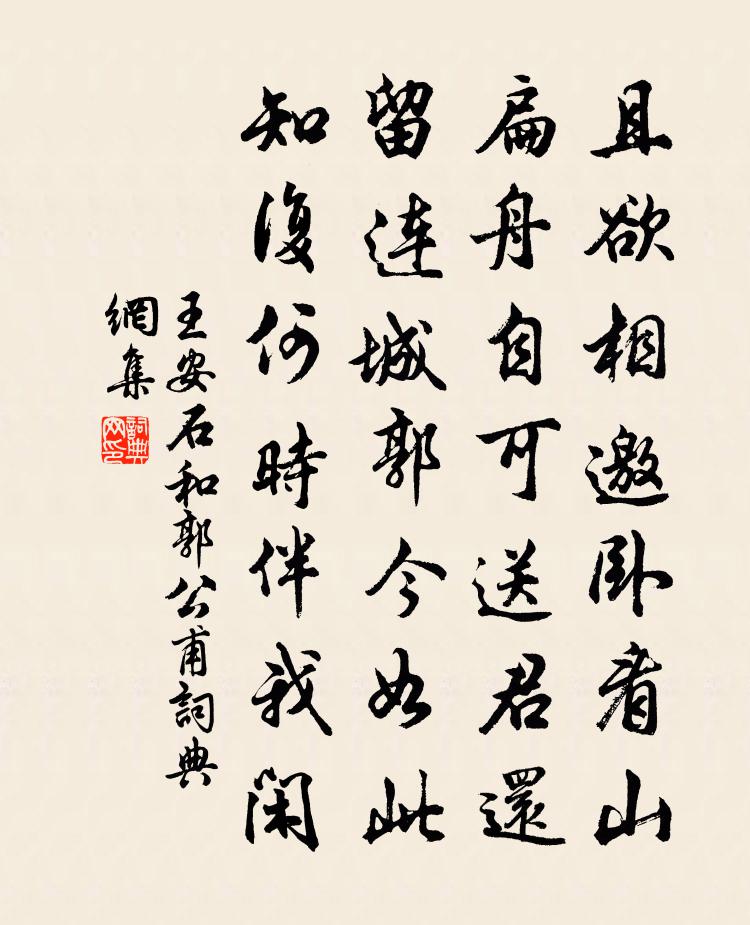 且欲相邀卧看山
扁舟自可送君還
留連城郭今如此
知復何時伴我閑
王安石和郭公甫詞典
網集
詞典
网印